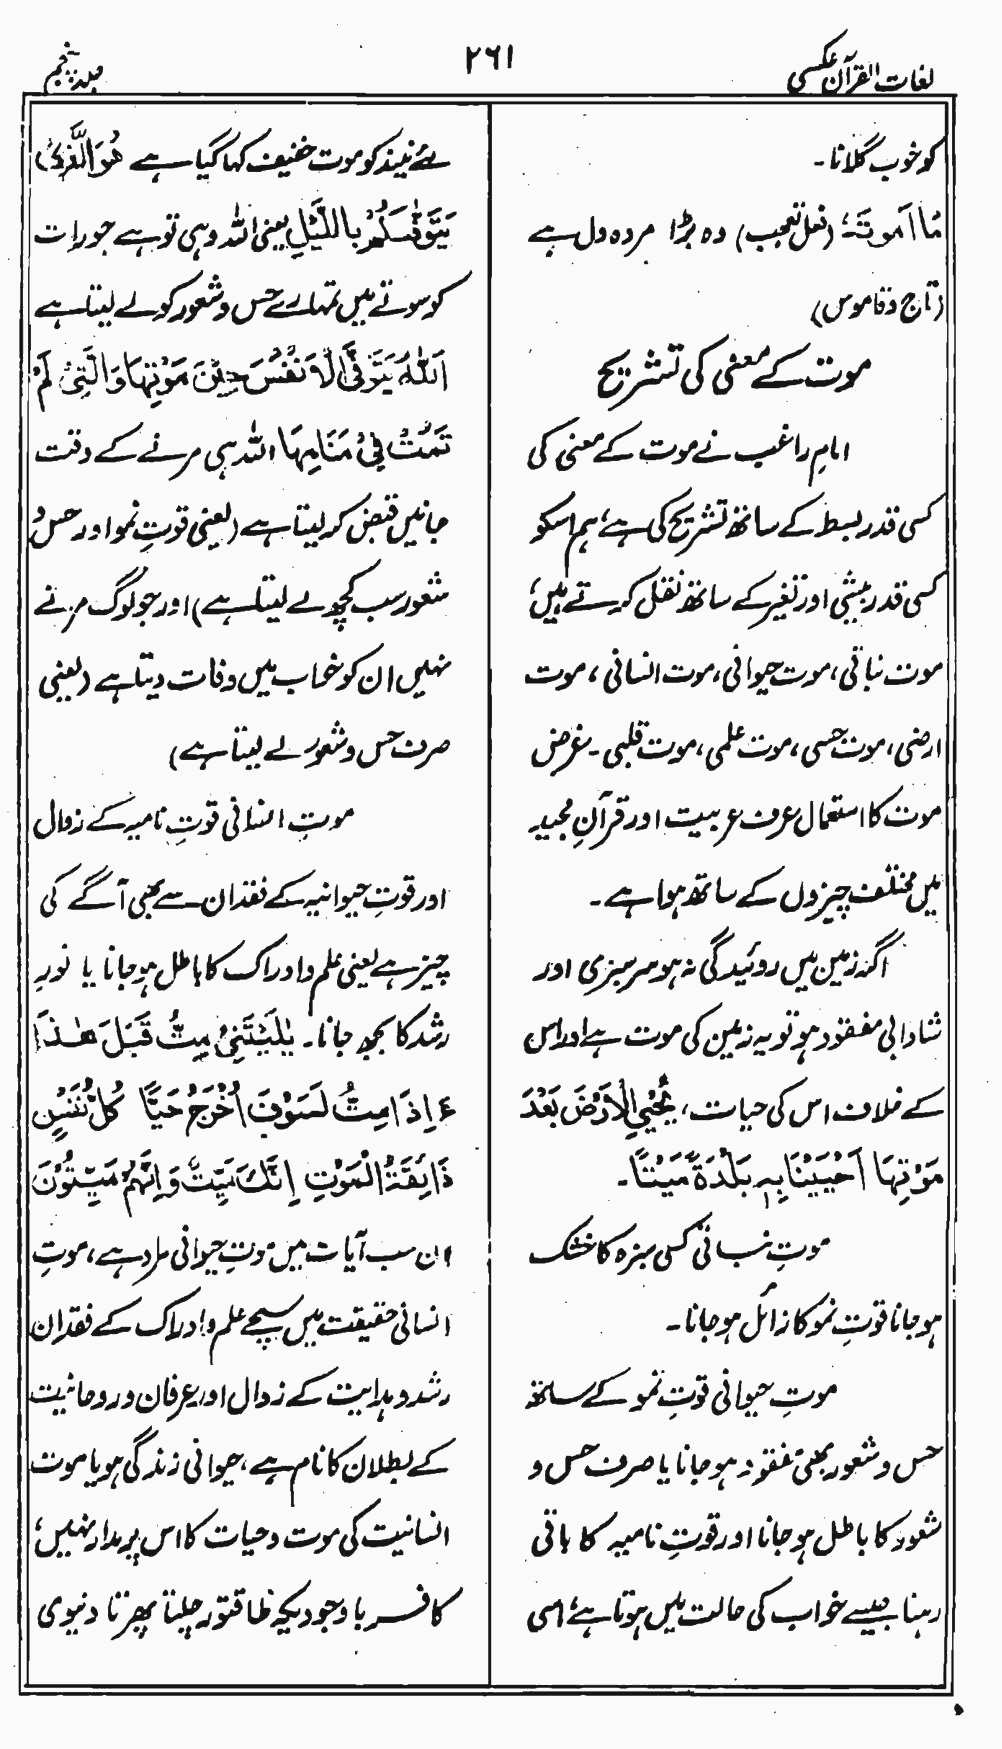 لغات القرآن عکسی
۲۶۱
جلد پنجم
کو خوب گلانا۔
مَا اَمْوَتَہٗ (فعل تعجب) وہ بڑا مردہ دل ہے
(تاج و قاموس)
موت کے معنی کی تشریح
امامِ راغب نے موت کے معنی کی
کسی قدر بسط کے ساتھ تشریح کی ہے، ہم اسکو
کسی قدر بیشی اور تغیر کے ساتھ نقل کرتے ہیں،
موت نباتی، موت حیوانی، موت انسانی، موت
ارضی، موت حسی، موت علمی، موت قلبی۔ غرض
موت کا استعمال عرف عربیت اور قرآنِ مجید
میں مختلف چیزوں کے ساتھ ہوا ہے۔
اگر زمین میں روئیدگی نہ ہو سرسبزی اور
شادابی مفقود ہو تو یہ زمین کی موت ہے اور اس
کے خلاف اس کی حیات، یُحْیِی الْاَرْضَ بَعْدَ
مَوْتِہَا اَحْیَیْنَا بِہٖ بَلْدَۃً مَّیْتًا۔
موتِ نباتی کسی سبزہ کا خشک
ہو جانا قوتِ نمو کا زائل ہو جانا۔
موتِ حیوانی قوتِ نمو کے ساتھ
حس و شعور بھی مفقود ہو جانا یا صرف حس و
شعور کا باطل ہو جانا اور قوتِ نامیہ کا باقی
رہنا جیسے خواب کی حالت میں ہوتا ہے، اسی
لئے نیند کو موت خفیف کہا گیا ہے ھُوَ الَّذِیْ
یَتَوَفّٰىکُمْ بِاللَّیْلِ یعنی اللہ وہی تو ہے جو رات
کو سوتے میں تمہارے حس و شعور کو لے لیتا ہے
اَللّٰہُ یَتَوَفَّی الْاَنْفُسَ حِیْنَ مَوْتِہَا وَالَّتِیْ لَمْ
تَمُتْ فِیْ مَنَامِہَا اللہ ہی مرنے کے وقت
جانیں قبض کر لیتا ہے (یعنی قوتِ نمو اور حس و
شعور سب کچھ لے لیتا ہے) اور جو لوگ مرتے
نہیں ان کو خواب میں وفات دیتا ہے (یعنی
صرف حس و شعور لے لیتا ہے)
موتِ انسانی قوتِ نامیہ کے زوال
اور قوتِ حیوانیہ کے فقدان سے بھی آگے کی
چیز ہے یعنی علم و ادراک کا باطل ہو جانا یا نورِ
رشد کا بجھ جانا۔ یٰلَیْتَنِیْ مِتُّ قَبْلَ ھٰذَا
ءَاِذَا مِتُّ لَسَوْفَ اُخْرَجُ حَیًّا کُلُّ نَفْسٍ
ذَائِقَۃُ الْمَوْتِ اِنَّکَ مَیِّتٌ وَّاِنَّہُمْ مَّیِّتُوْنَ
ان سب آیات میں موتِ حیوانی مراد ہے، موتِ
انسانی حقیقت میں سچے علم و ادراک کے فقدان
رشد و ہدایت کے زوال اور عرفان و روحانیت
کے بطلان کا نام ہے، حیوانی زندگی ہو یا موت
انسانیت کی موت و حیات کا اس پر مدار نہیں،
کافر باوجودیکہ طاقتور چلتا پھرتا دنیوی